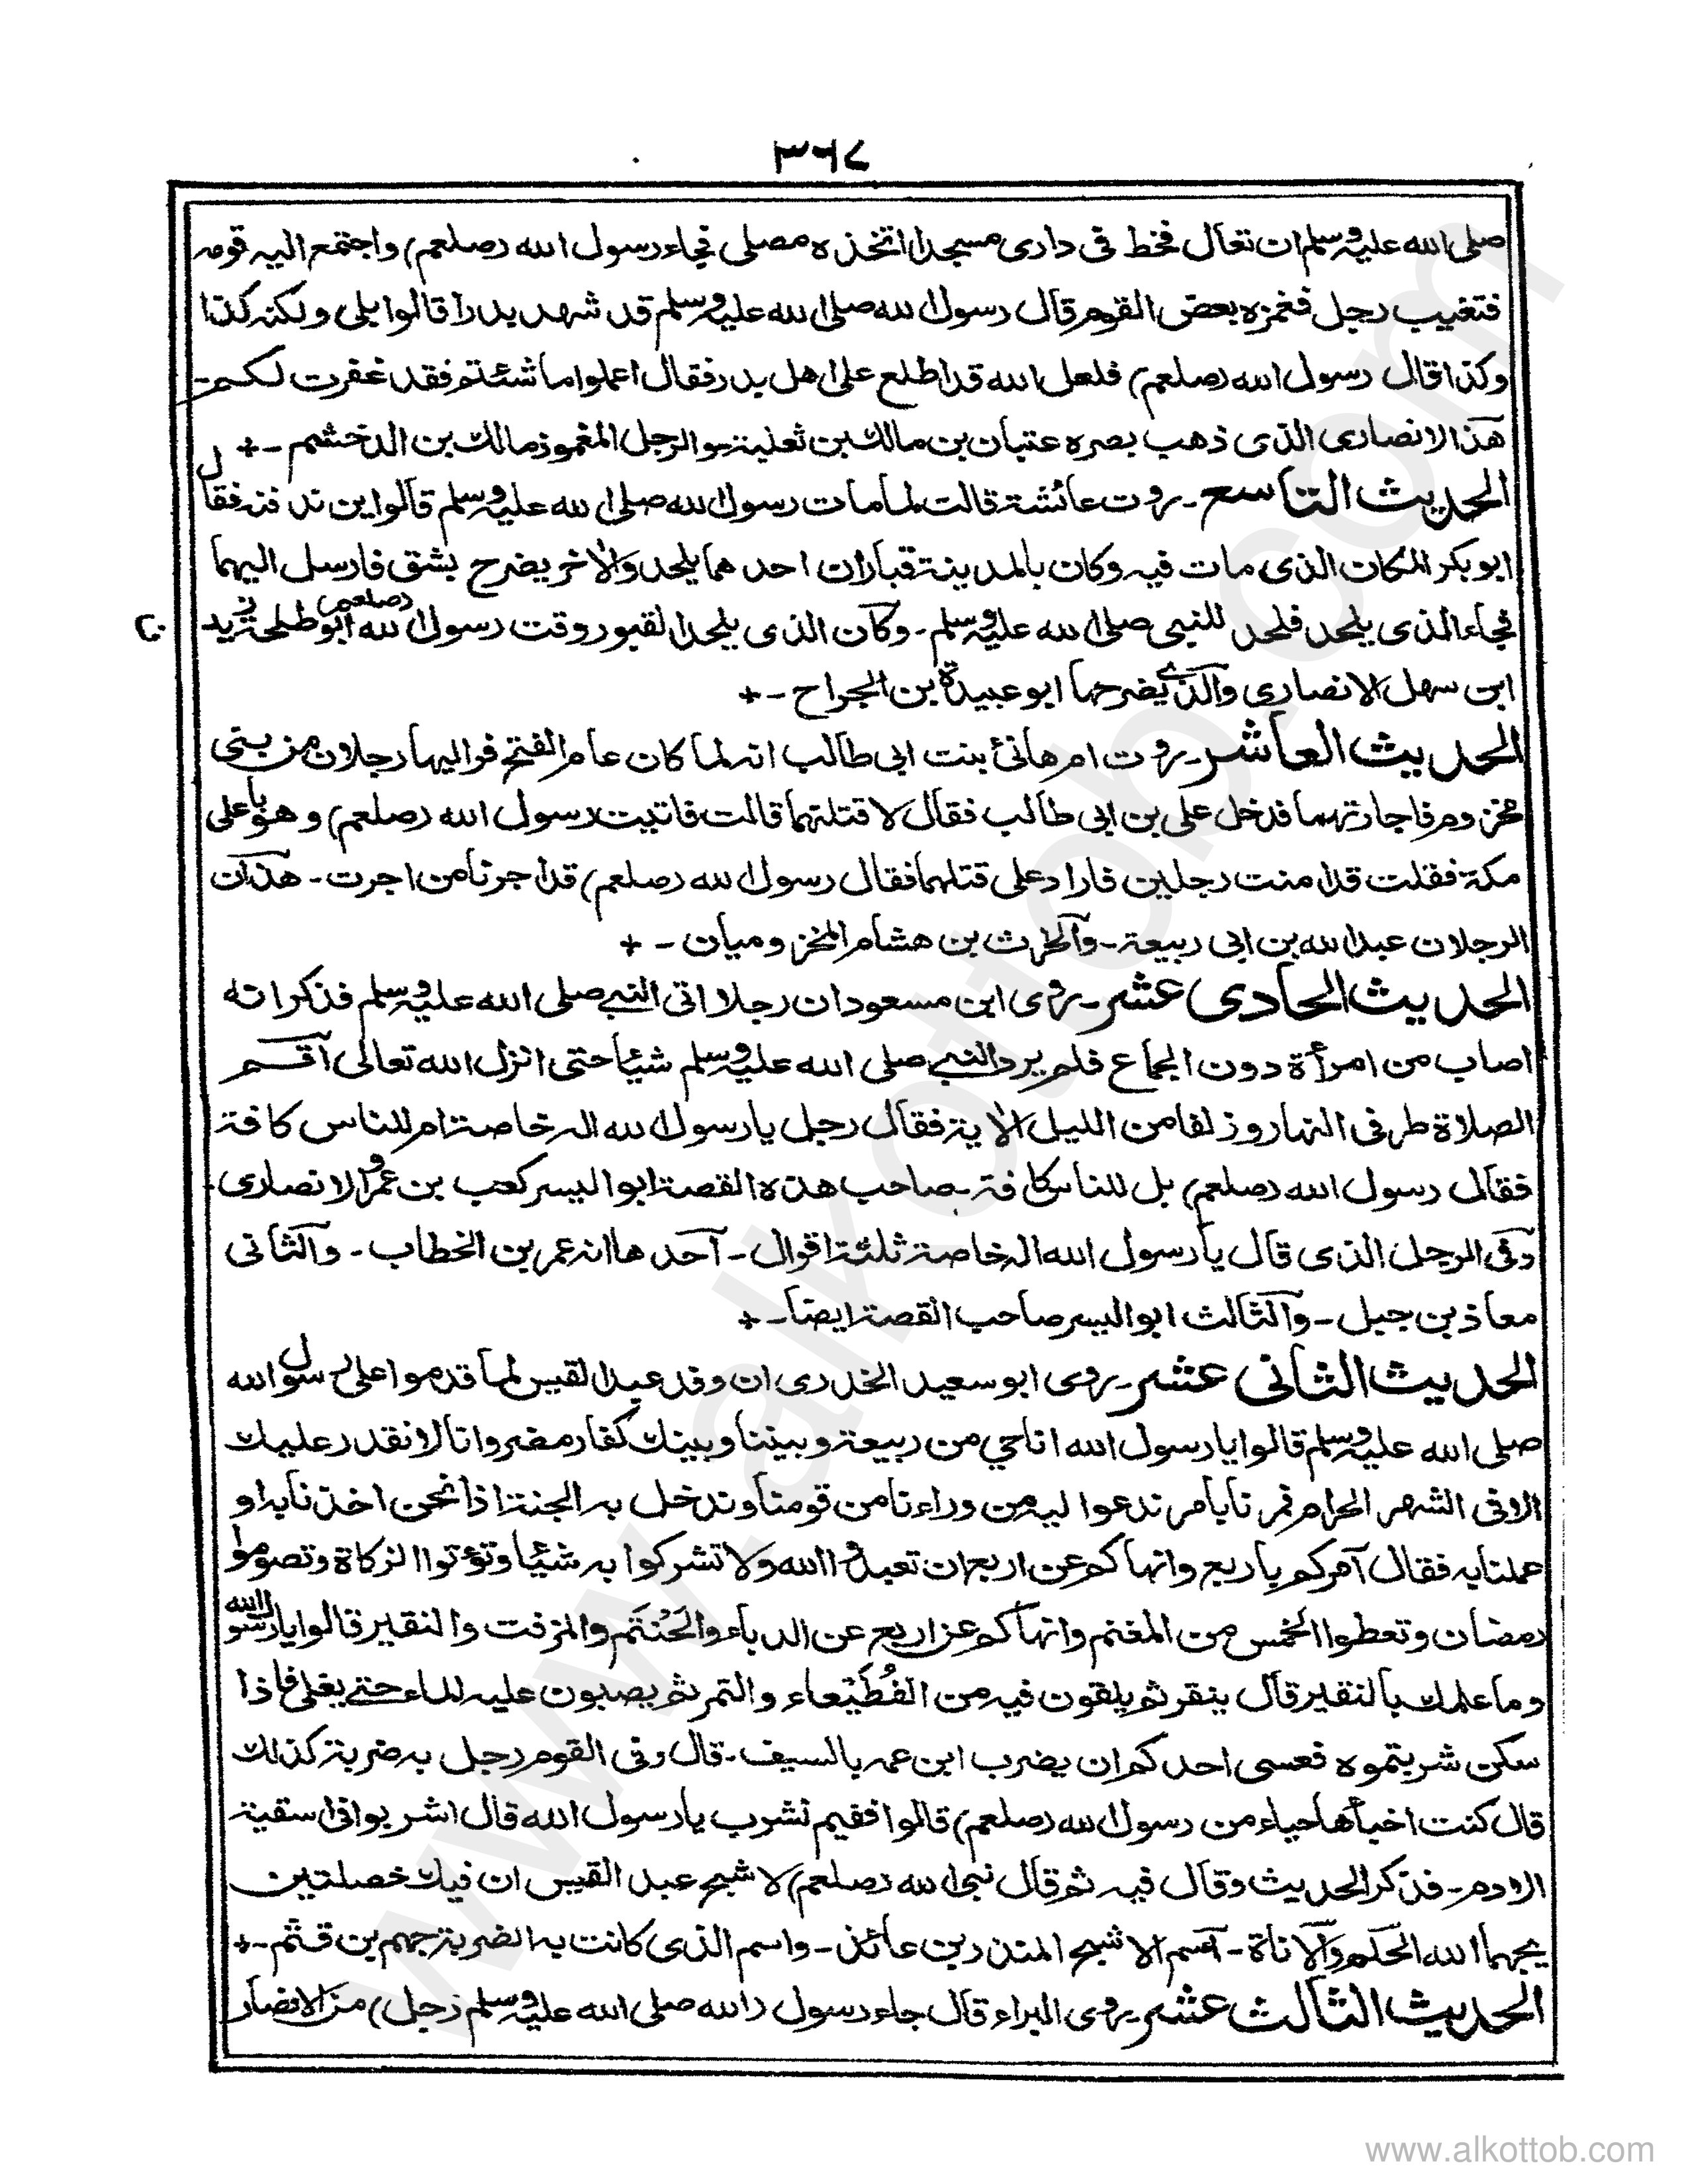 ٣٦٧
صلى الله عليه وسلم ان تعال فخط فى دارى مسجدا اتخذه مصلى فجاء رسول الله (صلعم) واجتمع اليه قومه
فتغيب رجل فغمزه بعض القوم قال رسول الله صلى الله عليه وسلم قد شهد بدرا قالوا بلى ولكنه كذا
وكذا قال رسول الله (صلعم) فلعل الله قد اطلع على اهل بدر فقال اعملوا ما شئتم فقد غفرت لكم-
هذا الانصارى الذى ذهب بصره عتبان بن مالك بن ثعلبة والرجل المغموز مالك بن الدخشم -+
الحديث التاسع- روت عائشة قالت لما مات رسول الله صلى الله عليه وسلم قالوا اين ندفنه فقال
ابو بكر المكان الذى مات فيه وكان بالمدينة قباران احدهما يلحد والاخر يضرح بشق فارسل اليهما
فجاء الذى يلحد فلحد للنبى صلى الله عليه وسلم- وكان الذى يلحد القبور وقت رسول الله (صلعم) ابو طلحة زيد
ابن سهل الانصارى والذى يضرحها ابو عبيدة بن الجراح -+
الحديث العاشر- روت ام هانئ بنت ابى طالب انه لما كان عام الفتح فر اليها رجلان من بنى
مخزوم فاجارتهما فدخل على بن ابى طالب فقال لا قتلتهما قالت فاتيت رسول الله (صلعم) وهو باعلى
مكة فقلت قد امنت رجلين فاراد على قتلهما فقال رسول الله (صلعم) قد اجرنا من اجرت- هذان
الرجلان عبد الله بن ابى ربيعة- والحرث بن هشام المخزوميان -+
الحديث الحادى عشر- روى ابن مسعود ان رجلا اتى النبى صلى الله عليه وسلم فذكر انه
اصاب من امرأة دون الجماع فلم يرد النبى صلى الله عليه وسلم شيأ حتى انزل الله تعالى اقم
الصلاة طرفى النهار وزلفا من الليل الاية فقال رجل يا رسول الله اله خاصة ام للناس كافة
فقال رسول الله (صلعم) بل للناس كافة- صاحب هذه القصة ابو اليسر كعب بن عمرو الانصارى-
وفى الرجل الذى قال يا رسول الله اله خاصة ثلثة اقوال- احدها انه عمر بن الخطاب- والثانى
معاذ بن جبل- والثالث ابو اليسر صاحب القصة ايضا-+
الحديث الثانى عشر- روى ابو سعيد الخدرى ان وفد عبد القيس لما قدموا على رسول الله
صلى الله عليه وسلم قالوا يا رسول الله انا حي من ربيعة وبيننا وبينك كفار مضر وانا لا نقدر عليك
الا فى الشهر الحرام فمرنا بامر ندعوا ليه من وراءنا من قومنا وندخل به الجنة اذا نحن اخذنا به او
عملنا به فقال آمركم باربع وانهاكم عن اربع ان تعبدوا الله ولا تشركوا به شيئا وتؤتوا الزكاة وتصوموا
رمضان وتعطوا الخمس من المغنم وانهاكم عن اربع عن الدباء والحَنْتَم والمزفت والنقير قالوا يا رسول الله
وما علمك بالنقير قال ينقر ثم يلقون فيه من القُطَيْعاء والتمر ثم يصبون عليه الماء حتى يغلى فاذا
سكن شربتموه فعسى احدكم ان يضرب ابن عمه بالسيف- قال وفى القوم رجل به ضربة كذلك
قال كنت اخبأها حياء من رسول الله (صلعم) قالوا ففيم نشرب يا رسول الله قال اشربوا فى اسقية
الادم- فذكر الحديث وقال فيه ثم قال نبى الله (صلعم) لا شبح عبد القيس ان فيك خصلتين
يحبهما الله الحلم والاناة- اسم الا شبح المنذر بن عائذ- واسم الذى كانت به الضربة جهم بن قثم-+
الحديث الثالث عشر- روى البراء قال جاء رسول (الله صلى الله عليه وسلم (رجل) من الانصار
www.alkottob.com
www.alkottob.com